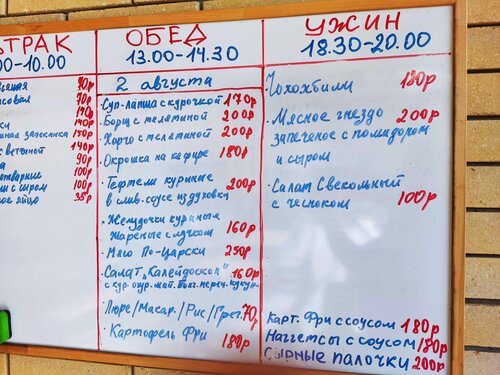 ТРАК
00-10.00
70р
70р
140р
140р
150р
140р
90р
100р
с сыром 100р
яйцо 35р
ОБЕД
13.00-14.30
2 августа
Суп-лапша с курочкой 170р
Борщ с телятиной 200р
Харчо с телятиной 200р
Окрошка на кефире 180р
Тефтели куриные
в слив. соусе из духовки 200р
Желудочки куриные
жареные с лучком 160р
Мясо По-Царски 250р
Салат „Калейдоскоп" 160р
с кур. огур. мат. болг. переч. кукур.
Пюре/Макар./Рис/Греч. 70р
Картофель Фри 180р
УЖИН
18.30-20.00
Чохохбили 180р
Мясное гнездо 200р
запеченое с помидором
и сыром
Салат Свекольный
с чесноком 100р
Карт. Фри с соусом 180р
Наггетсы с соусом 180р
Сырные палочки 200р